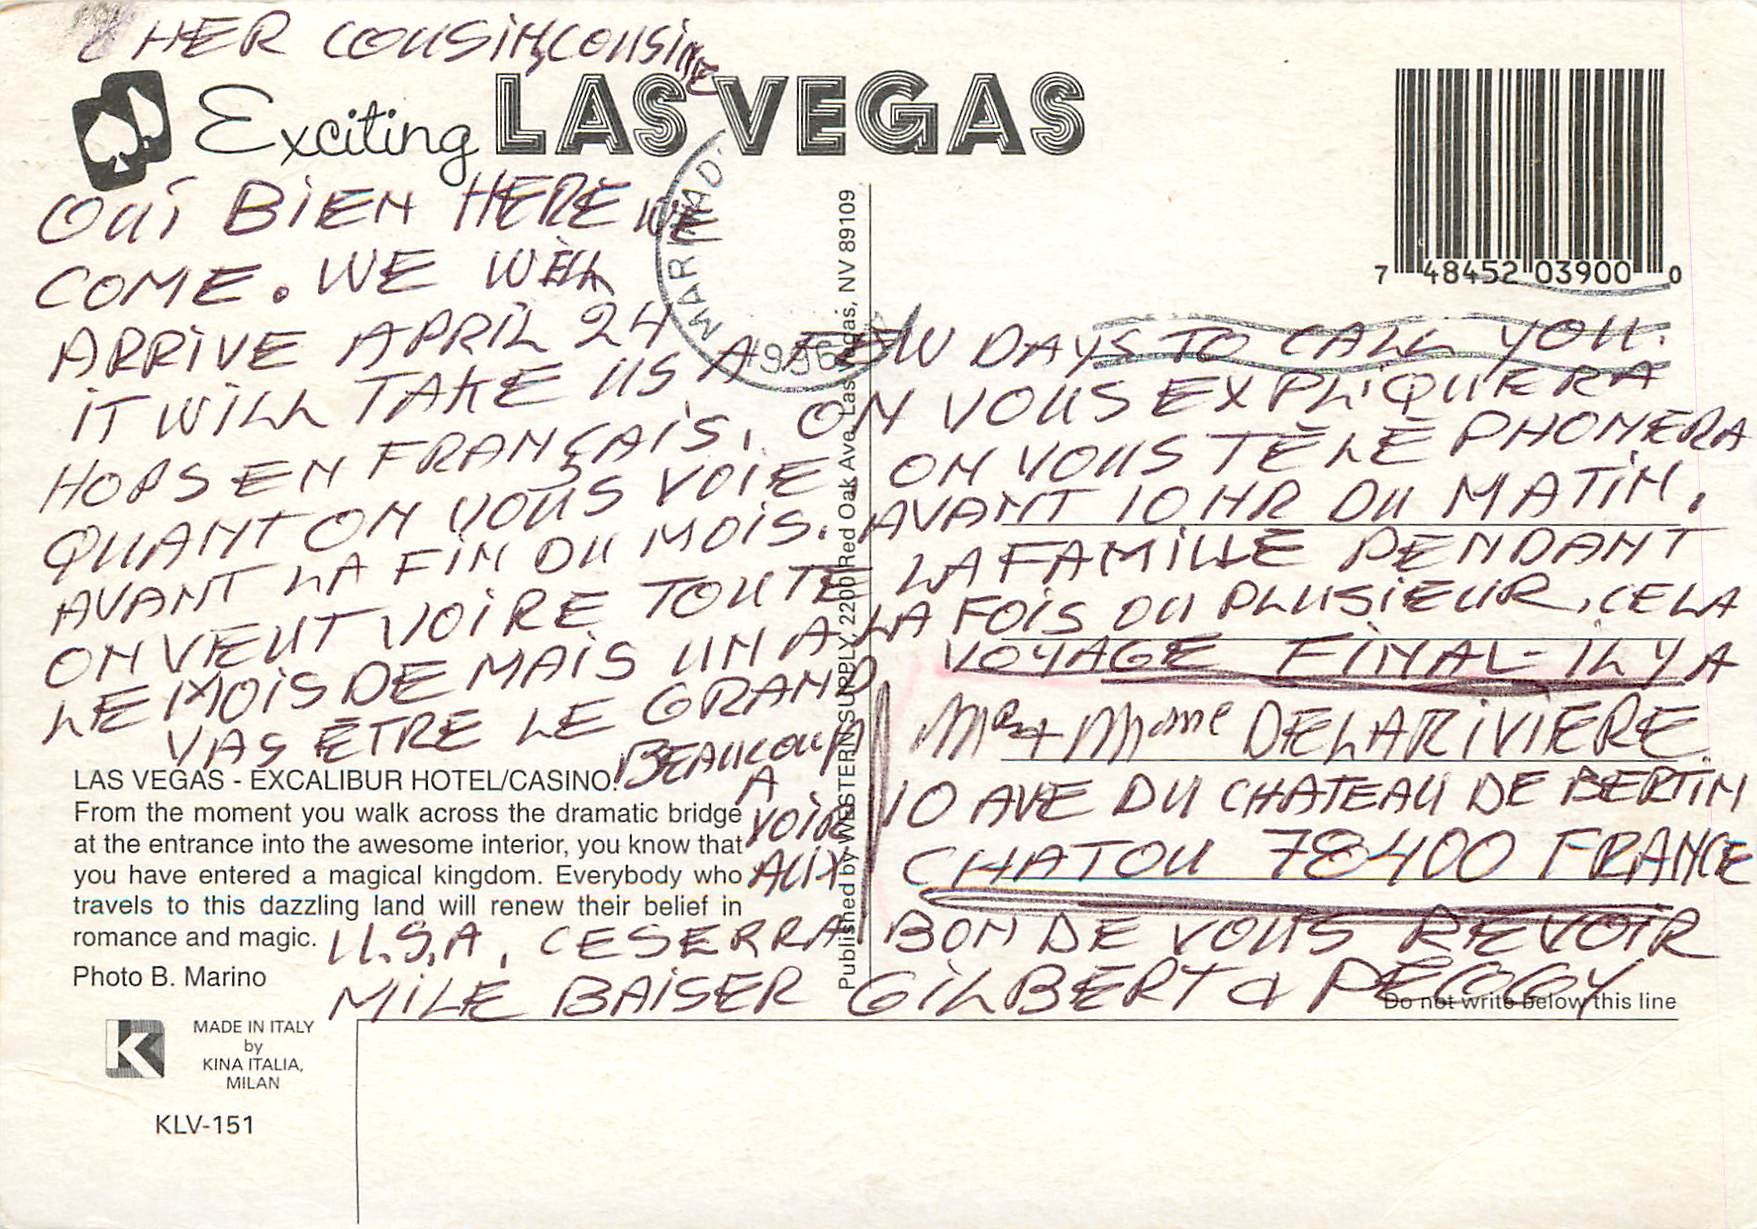 CHER COUSIN, COUSINE
Exciting LAS VEGAS
OUI BIEN HERE WE
COME. WE WILL
ARRIVE APRIL 24
IT WILL TAKE US A FEW DAYS TO CALL YOU.
HORS EN FRANÇAIS, ON VOUS EXPLIQUERA
QUANT ON VOUS VOIE ON VOUS TÈLÈPHONERA
AVANT LA FIN DU MOIS. AVANT 10 HR DU MATIN,
ON VEUT VOIRE TOUTE LA FAMILLE PENDANT
LE MOIS DE MAIS UN A LA FOIS OU PLUSIEUR, CELA
VAS ÊTRE LE GRAND VOYAGE FINAL - IL Y A
BEAUCOUP
A
VOIR
AUX
U.S.A, CE SERRA BON DE VOUS REVOIR
MILE BAISER GILBERT & PEGGY
Mr + Mme DELARIVIERE
10 AVE DU CHATEAU DE BERTIN
CHATOU 78400 FRANCE
LAS VEGAS - EXCALIBUR HOTEL/CASINO:
From the moment you walk across the dramatic bridge
at the entrance into the awesome interior, you know that
you have entered a magical kingdom. Everybody who
travels to this dazzling land will renew their belief in
romance and magic.
Photo B. Marino
K
MADE IN ITALY
by
KINA ITALIA,
MILAN
KLV-151
Published by WESTERN SUPPLY, 2200 Red Oak Ave, Las Vegas, NV 89109
7 48452 03900 0
MAR
1996
Do not write below this line